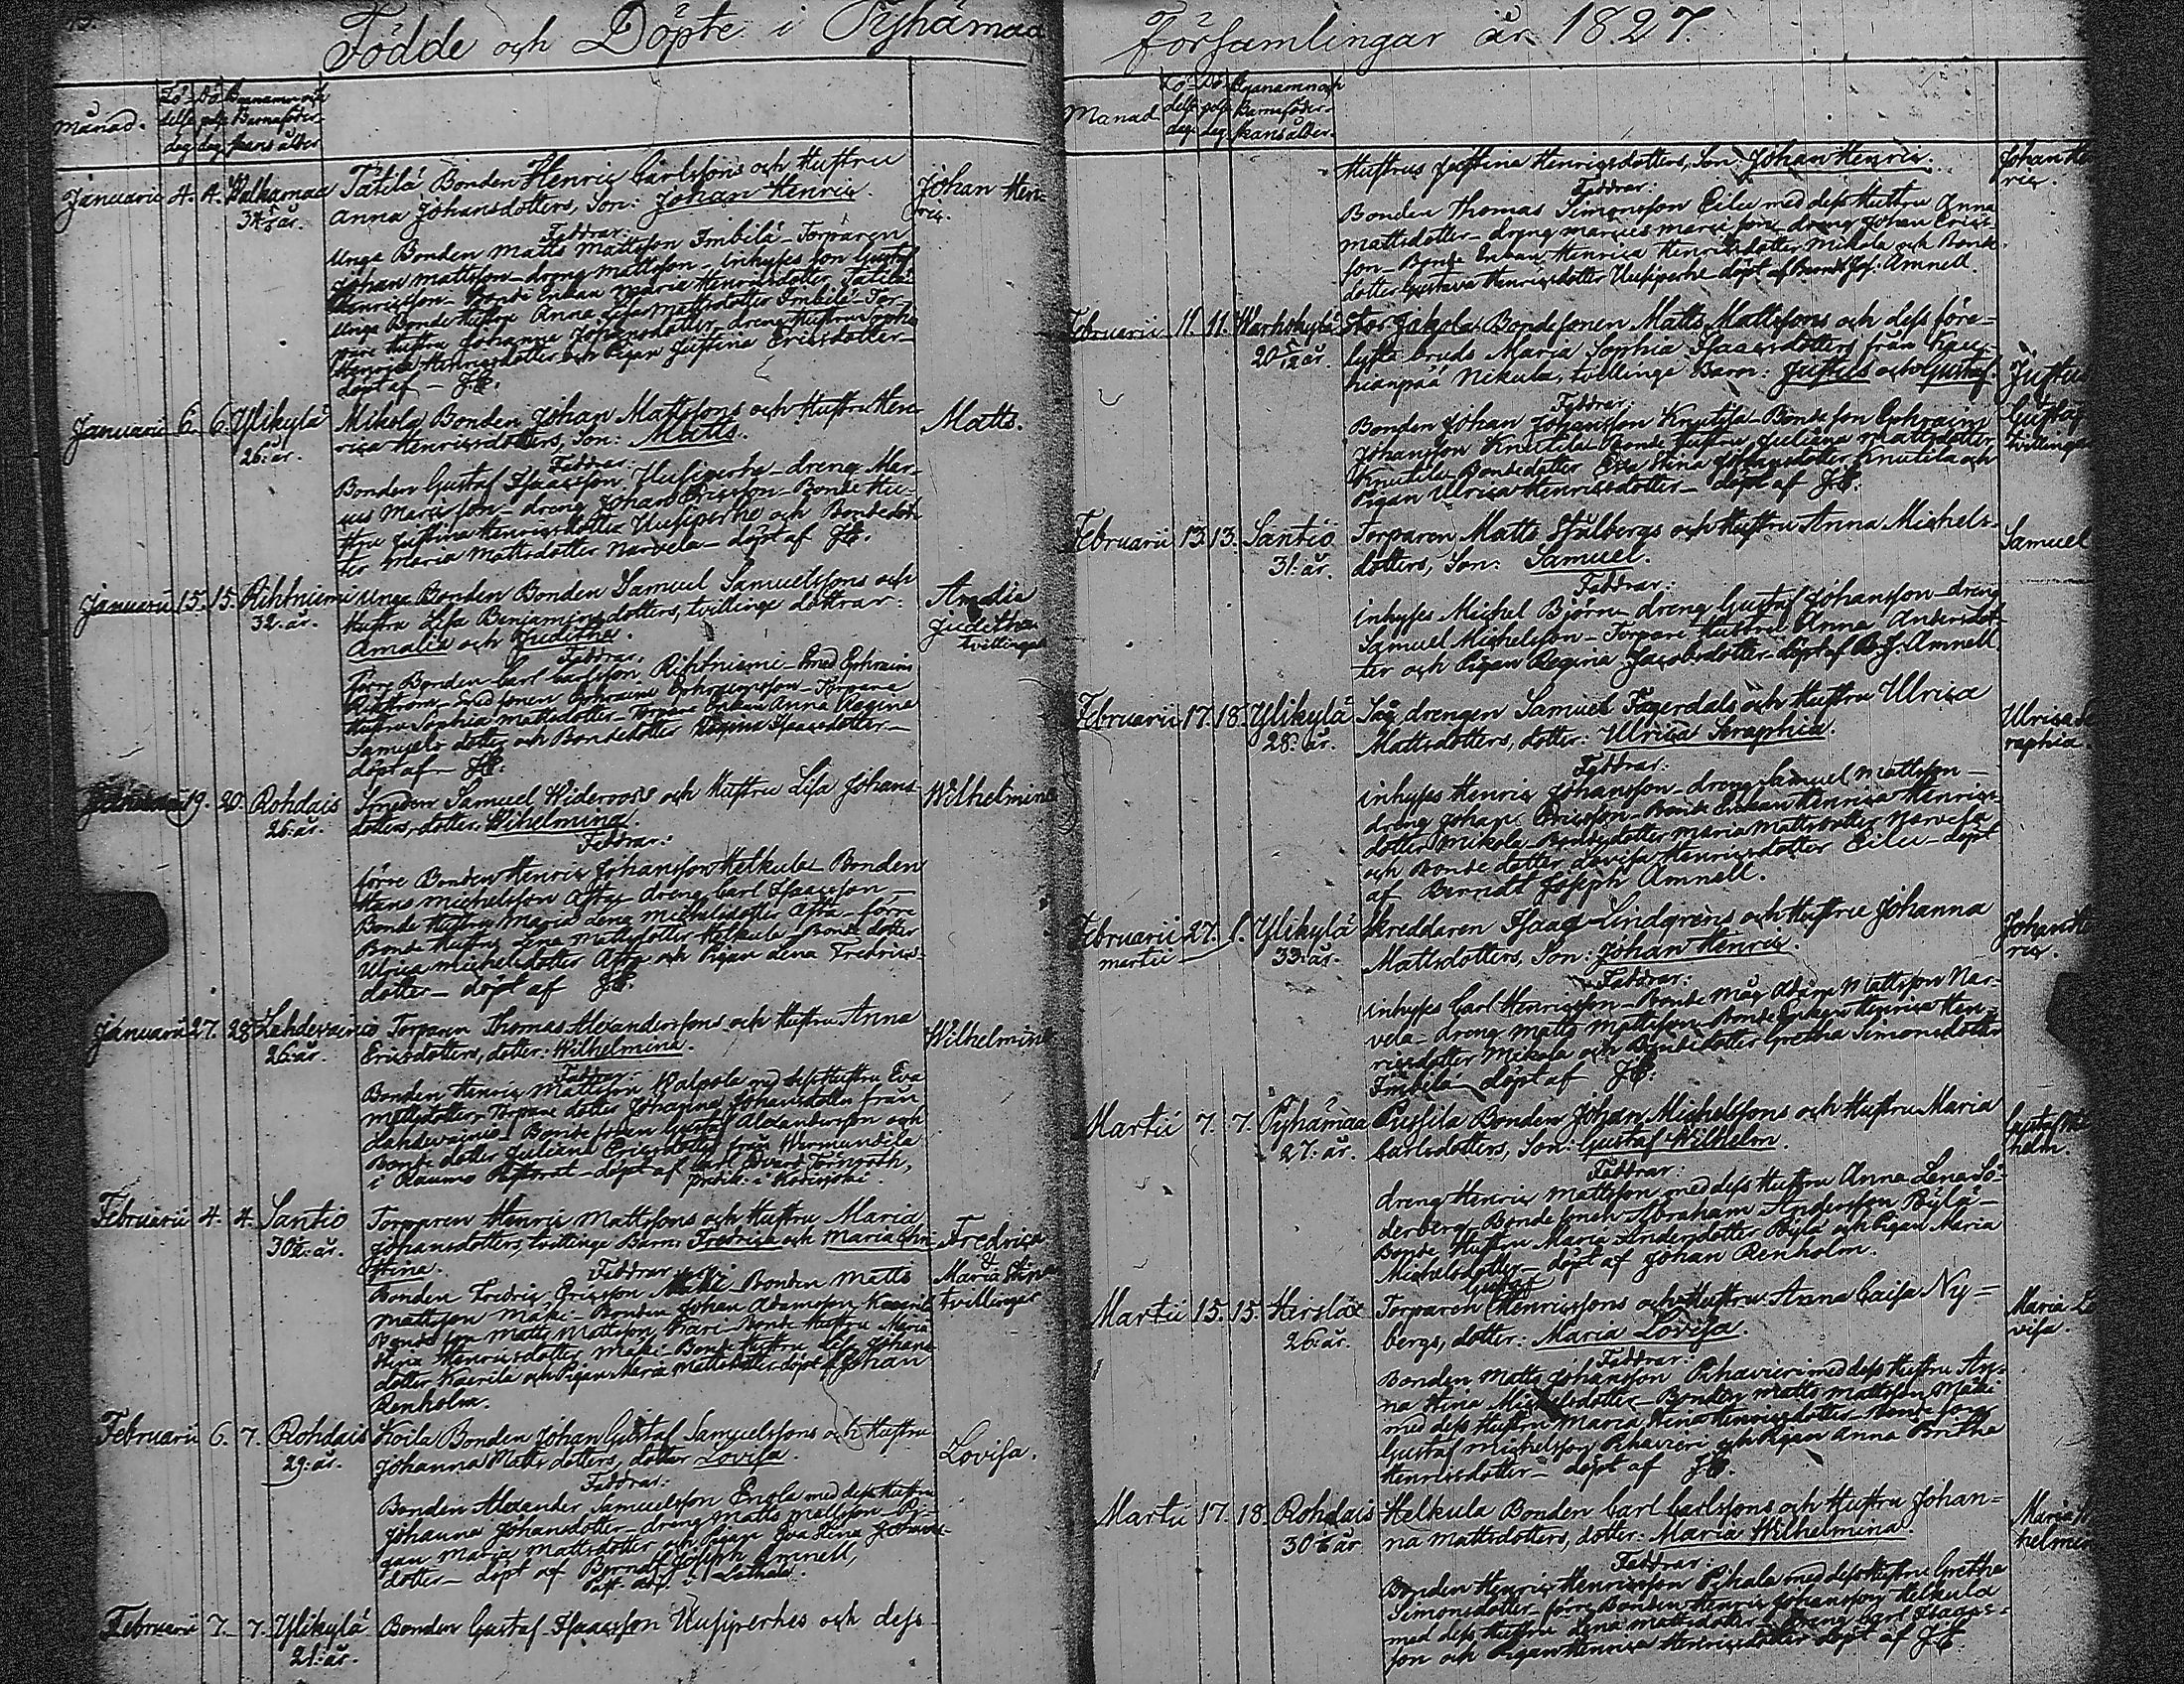 Födde och Döpte i Pyhämaa
Månad.
Fö- Dö Byanamn och
delse pelse Barnaföder-
dag dag skans ålder
Januarii 4. 4. Walkamaa Tätilä Bonden Henric Carlssons och Hustru Johan Hen-
34 år. Anna Johansdotters, Son: Johan Henric. ric.
Faddrar:
Unga Bonden Matts Mattsson Imbilä - Torparen
Johan Mattsson - dreng Mattsson - inhyses son Gustaf
Henricsson - Bonde Enkan Maria Henricsdotter Tätilä
Unga Bonde Hustru Anna Lisa Mattsdotter Imbilä - Tor-
pare Hustru Johanna Johansdotter - dreng Hustru Sophia
Henricsdotter och Pigan Justina Ericsdotter -
döpt af -
Januarii 6. 6. Ylikylä Mikola Bonden Johan Mattssons och Hustru Hen- Matts.
26: år. rica Henricsdotters, Son: Matts.
Faddrar:
Bonden Gustaf Isaacsson Uusiperhe - dreng Mar-
cus Marcisson - dreng Johan Ericsson - Bonde Hu-
stru Justina Henricsdotter Uusiperhe och Bondedot-
ter Maria Mattsdotter Narvela - döpt af
Januarii 15. 15. Rihtniemi Unga Bonden Bonden Samuel Samuelssons och Amalia
32: år. Hustru Lisa Benjaminsdotters, tvillinge döttrar: Juditha
Amalia och Juditha. tvillingar
Faddrar.
förre Bonden Carl Carlsson Rihtniemi - Smed Ephraim
Smed sonen Ephraim Ephraimsson - Torpare
Hustru Sophia Mattsdotter - Torpare Enkan Anna Regina
Samuels dotter och Bondedotter Regina Isaacsdotter -
döpt af -
Januarii 19. 20. Rohdais Smeden Samuel Wideroos och Hustru Lisa Johans- Wilhelmina
26: år. dotters, dotter: Wilhelmina.
Faddrar:
förre Bonden Henric Johansson Helkula - Bonden
Hans Michelsson - dreng Carl Isaacsson -
Bonde Hustru Maria Lena Michelsdotter - förre
Bonde Hustru Lena Mattsdotter Helkula - Bonde dotter
Ulrica Michelsdotter och Pigan Lena Fredrics-
dotter - döpt af
Januarii 27. 28. Lahdevainio Torparen Thomas Alexanderssons och Hustru Anna Wilhelmina
26: år. Ericsdotters, dotter: Wilhelmina.
Faddrar:
Bonden Henric Mattsson Walpola med dess Hustru Eva
Mattsdotter - Torpare dotter Johanna Johansdotter från
Lahdevainio - Bonde sonen Gustaf Alexandersson och
Bonde dotter Juliana Ericsdotter från Wermundila
i Raumo - döpt af Carl Edvard Törnroth,
Februarii 4. 4. Santio Torparen Henric Mattssons och Hustru Maria Fredrica
30 år. Johansdotters, tvillinge Barn: Fredrica och Maria Chri- &
stina. Maria Stina
Faddrar: tvillingar
Bonden Fredric Ericsson Mäki - Bonden Matts
Mattsson Mäki - Bonden Johan Adamsson Kaerila
Bonde son Matts Mattsson - Bonde Hustru Maria
Stina Henricsdotter Mäki - Bonde Hustru Lisa Johans-
dotter Kaerila och Pigan Maria Mattsdotter döpt af Johan
Renholm.
Februarii 6. 7. Rohdais Koila Bonden Johan Gustaf Samuelssons och Hustru Lovisa.
29: år. Johanna Matts dotters, dotter Lovisa.
Faddrar:
Bonden Alexander Samuelsson Erola med dess Hustru
Johanna Johansdotter - dreng Matts Mattsson - Pi-
gan Maria Mattsdotter och Pigan Eva Stina Johans-
dotter - döpt af Berndt Joseph Amnell,
Februarii 7. 7. Ylikylä Bonden Gustaf Isaacsson Uusiperhes och dess
21: år.
församlingar år 1827.
Månad
Fö- Dö- Byanamn och
delse pelse Barnaföder-
dag. dag skans ålder.
Hustrus Justina Henricsdotters, Son: Johan Henric. Johan He
Faddrar: ric.
Bonden Thomas Simonsson Eilu med dess Hustru Anna
Mattsdotter - dreng Marcus Marcisson - dreng Johan Erics-
son - Bonde Enkan Henrica Henricsdotter Mikola och Bonde-
dotter Gustava Henricsdotter Uusiperhe - döpt af Berndt Jos: Amnell.
Februarii 11. 11. Warhokylä Stor Jakola Bondesonen Matts Mattssons och dess före-
20 5/12 år lysta bruds Maria Sophia Isaacsdotters från
Nikula, tvillinge Barn: Justus och Gustaf Justus
Faddrar: Gustaf
Bonden Johan Johansson Knutila - Bonde son Ephraim tvillingar
Johansson Knutila - Bonde Hustru Juliana Mattsdotter
Knutila - Bondedotter Eva Stina Johansdotter Knutila och
Pigan Ulrica Henricsdotter - döpt af
Februarii 13. 13. Santio Torparen Matts Stålbergs och Hustru Anna Michels- Samuel
31: år. dotters, Son: Samuel.
Faddrar:
inhyses Michel Björn - dreng Gustaf Johansson - dreng
Samuel Michelsson - Torpare Hustru Anna Andersdot-
ter och Pigan Regina Jacobsdotter - döpt af B. J. Amnell
Februarii 17. 18. Ylikylä Såg drengen Samuel Fagerdals och Hustru Ulrica Ulrica Se
28: år. Mattsdotters, dotter: Ulrica Seraphia. raphia.
Faddrar:
inhyses Henric Johansson - dreng Samuel Mattsson -
dreng Johan Ericsson - Bonde Enkan Henrica Henrics-
dotter Mikola - Bondedotter Maria Mattsdotter Narvela
och Bonde dotter Lovisa Henricsdotter Eilu - döpt
af Berndt Joseph Amnell.
Februarii 27. 1. Ylikylä Skreddaren Isaac Lindgrens och Hustru Johanna Johan He
martii 33: år. Mattsdotters, Son: Johan Henric. ric.
Faddrar:
inhyses Carl Henricsson - Bonde måg Adam Mattsson Nar-
vela - dreng Matts Mattsson - Bonde Enkan Henrica Hen-
ricsdotter Mikola och Bondedotter Gretha Simonsdotter
Imbila - döpt af
Martii 7. 7. Pyhämaa Pussila Bonden Johan Michelssons och Hustru Maria Gustaf Wil
27: år. Carlsdotters, Son: Gustaf Wilhelm. helm.
Faddrar:
dreng Henric Mattsson med dess Hustru Anna Lena Sö-
derberg - Bonde sonen Abraham Andersson Böylä -
Bonde Hustru Maria Andersdotter Böylä och Pigan Maria
Michelsdotter - döpt af Johan Renholm.
Gustaf
Martii 15. 15. Hirslax Torparen Henricssons och Hustru Anna Caisa Ny= Maria Lo
26: år. bergs, dotter: Maria Lovisa. visa.
Faddrar:
Bonden Matts Johansson Rihavieri med dess Hustru An-
na Stina Michelsdotter - Bonden Matts Mattsson Mäki
med dess Hustru Maria Stina Henricsdotter - Bonde son
Gustaf Michelsson Rihavieri och Pigan Anna Britha
Henricsdotter - döpt af
Martii 17. 18. Rohdais Helkula Bonden Carl Carlssons och Hustru Johan= Maria W
30 år na Mattsdotters, dotter: Maria Wilhelmina. helmin
Faddrar:
Bonden Henric Henricsson Pihala med dess Hustru Gretha
Simonsdotter - förre Bonden Henric Johansson Helkula
med dess Hustru Lena Mattsdotter - dreng Carl Isaacs=
son och Pigan Henrica Henricsdotter döpt af